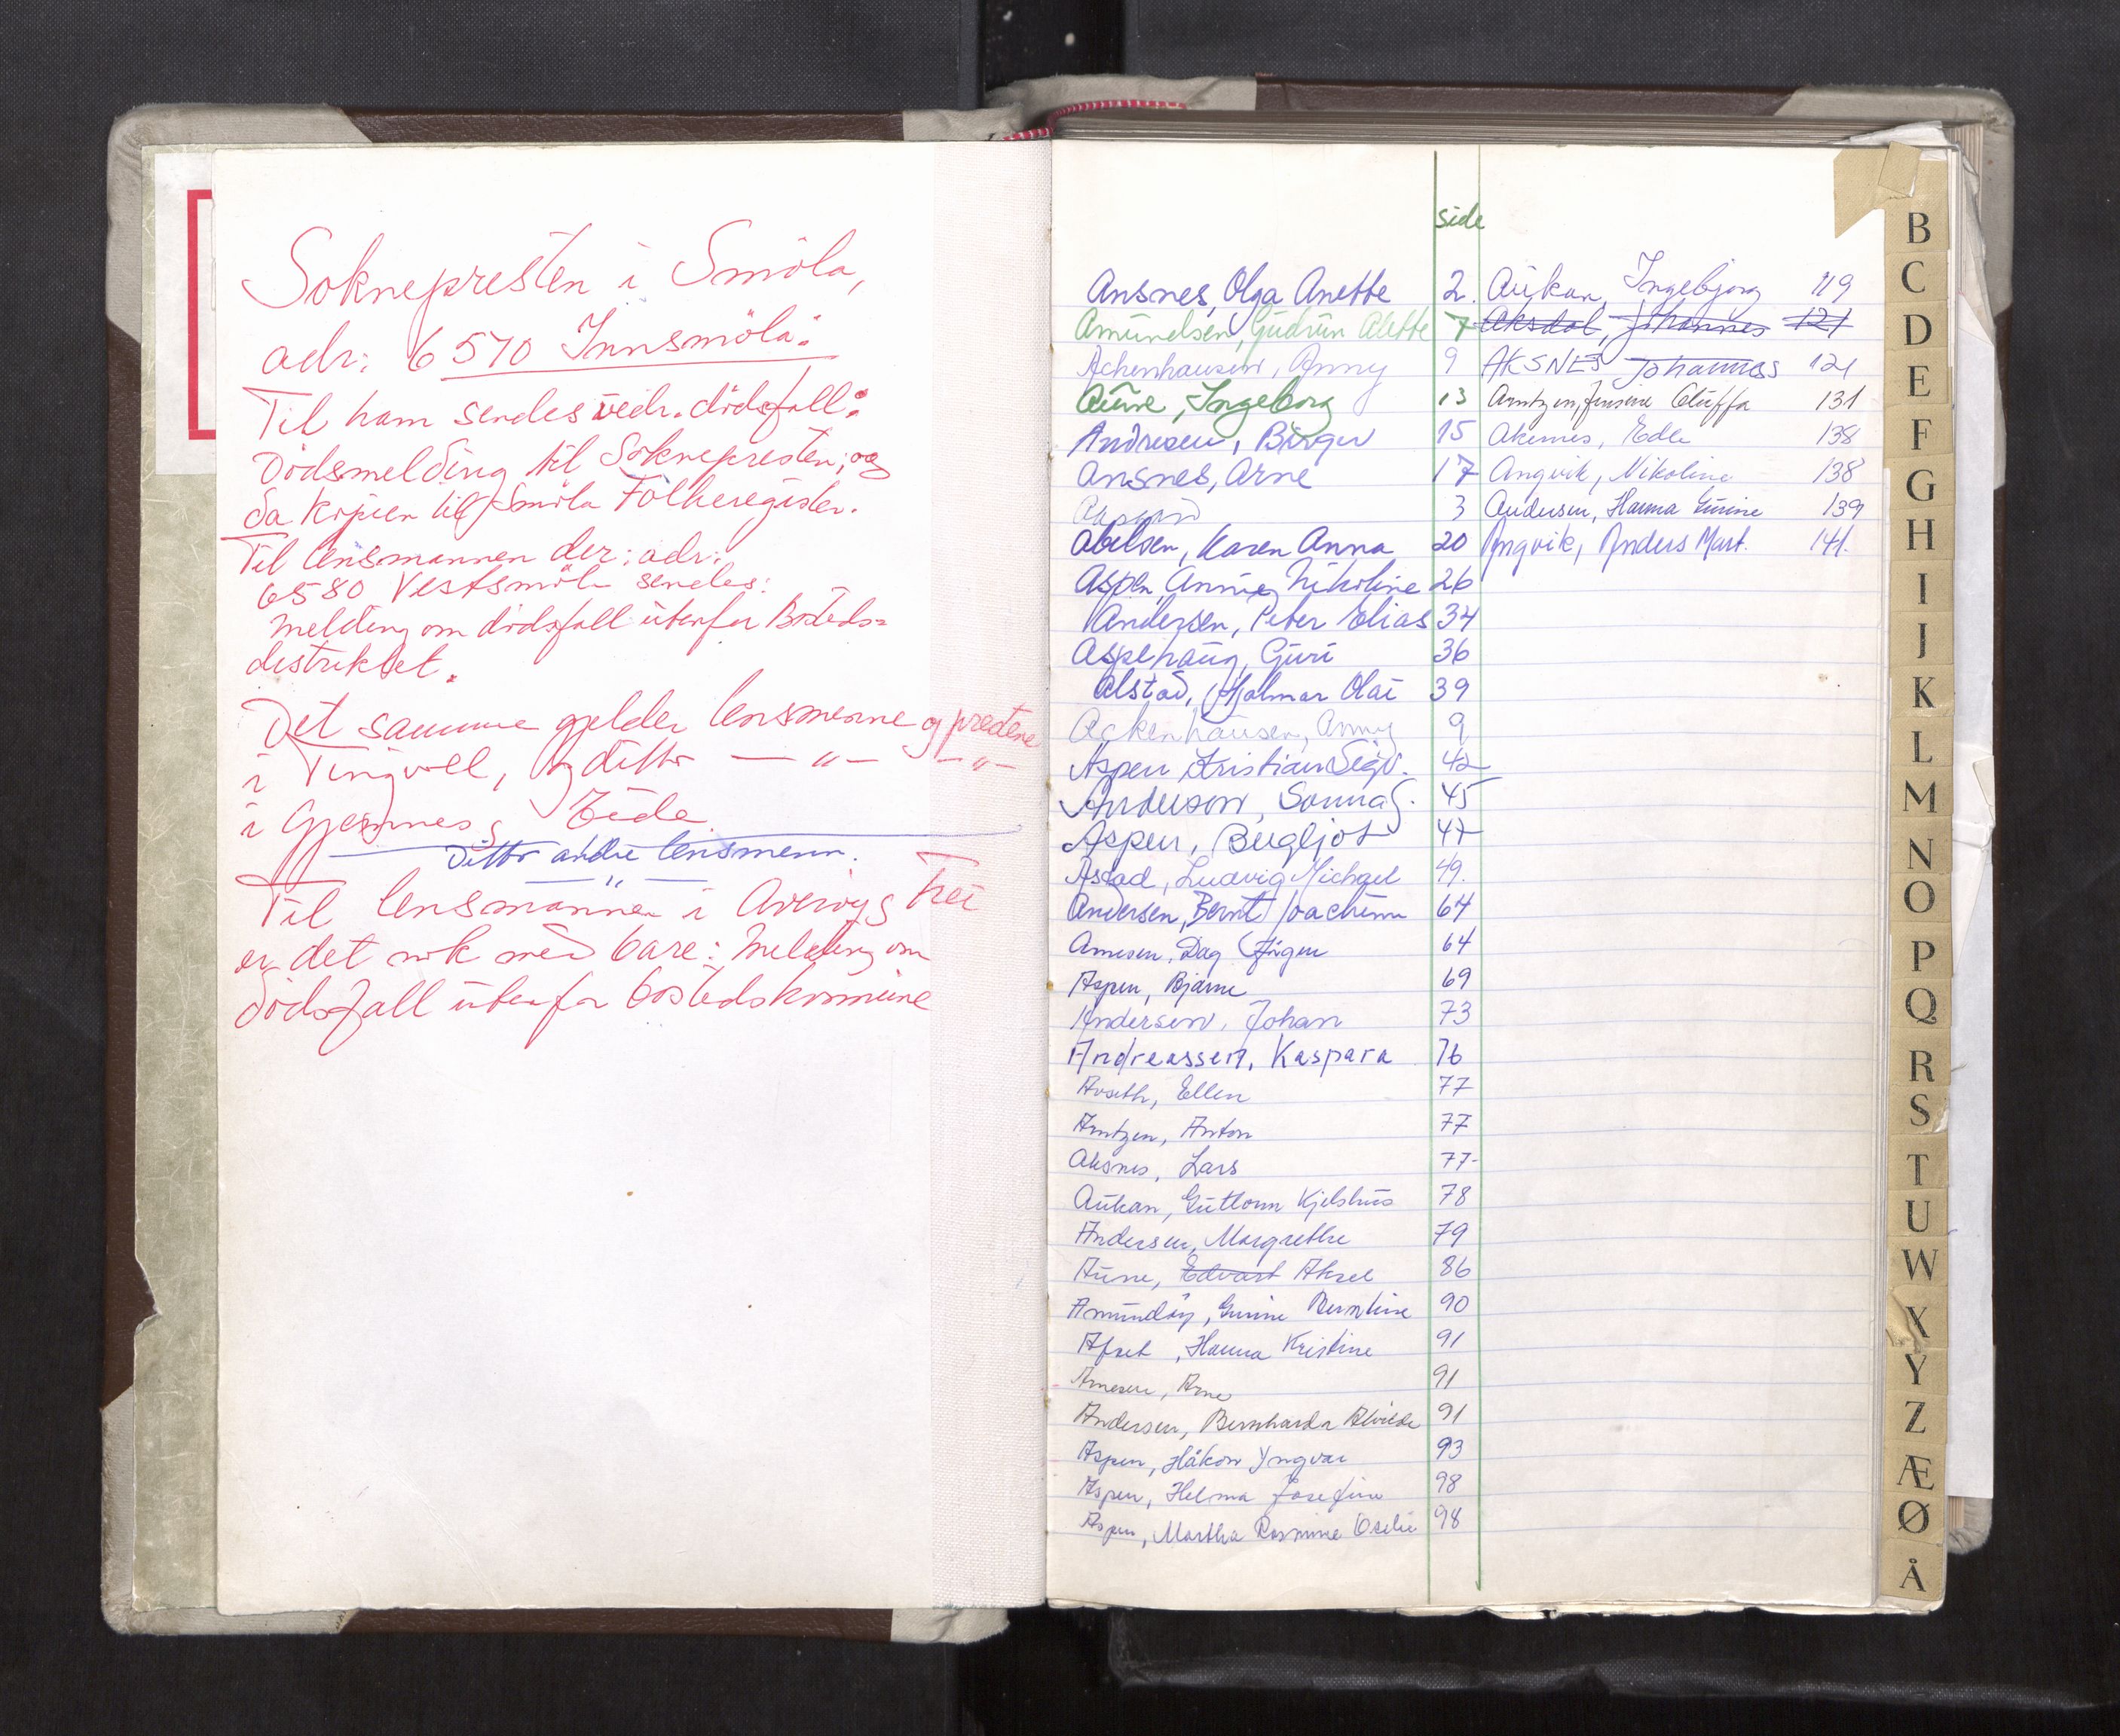 Soknepresten i Smöla,
adr: 6570 Innsmöla:
Til ham sendes vedr. dödsfall:
Dödsmelding til Soknepresten, og
da kopien til Smöla Folkeregister.
Til lensmannen der: adr:
6580 Vestsmöla sendes:
melding om dödsfall utenfor Bosteds=
distriktet.
Det samme gjelder lensmenne og prestene
i Tingvoll, og ditto — " — — " —
i Gjemnes, Eide
Ditto andre lensmenn.
— " —
Til lensmannen i Averöy, Frei
er det nok med bare: Melding om
dödsfall utenfor bostedskommune
side
Ansnes, Olga Anette 2.
Amundsen, Gudrun Alette 7
Achenhausen, Anny 9
Aune, Ingeborg 13
Andresen, Birger 15
Ansnes, Arne 17
3
Abelsen, Karen Anna 20
Aspen, Annie Nikoline 26
Andersen, Peter Elias 34
Aspehaug, Guri 36
Alstad, Hjalmar Olai 39
Ackenhausen, Anny 9
Aspen, Kristian Sigv. 42
Anderson, Sonna S. 45
Aspen, Bergljot 47
Astad, Ludvig Michael 49.
Andersen, Bernt Joachim 64
Arnesen, Dag Jörgen 64
Aspen, Bjarne 69
Andersen, Johan 73
Andreassen, Kaspara 76
Aoseth, Ellen 77
Arntzen, Anton 77
Aksnes, Lars 77
Aukan, Guttorm Kjelshus 78
Andersen, Margrethe 79
Aune, Edvart Aksel 86
Amundöy, Gurine Berntine 90
Afset, Hanna Kristine 91
Arnesen, Arne 91
Andersen, Bernharda Alvilde 91
Aspen, Håkon Yngvar 93
Aspen, Helma Josefine 98
Aspen, Martha Rasmine Oselie 98
Aukan, Ingebjorg 119
Aksdal, Johannes 121
AKSNES Johannes 121
Arntzen, Jensine Oluffa 131
Akernes, Edle 138
Angvik, Nikoline 138
Andersen, Hanna Gurine 139
Angvik, Anders Mart. 141.
B
C
D
E
F
G
H
I
J
K
L
M
N
O
P
Q
R
S
T
U
W
X
Y
Z
Æ
Ø
Å